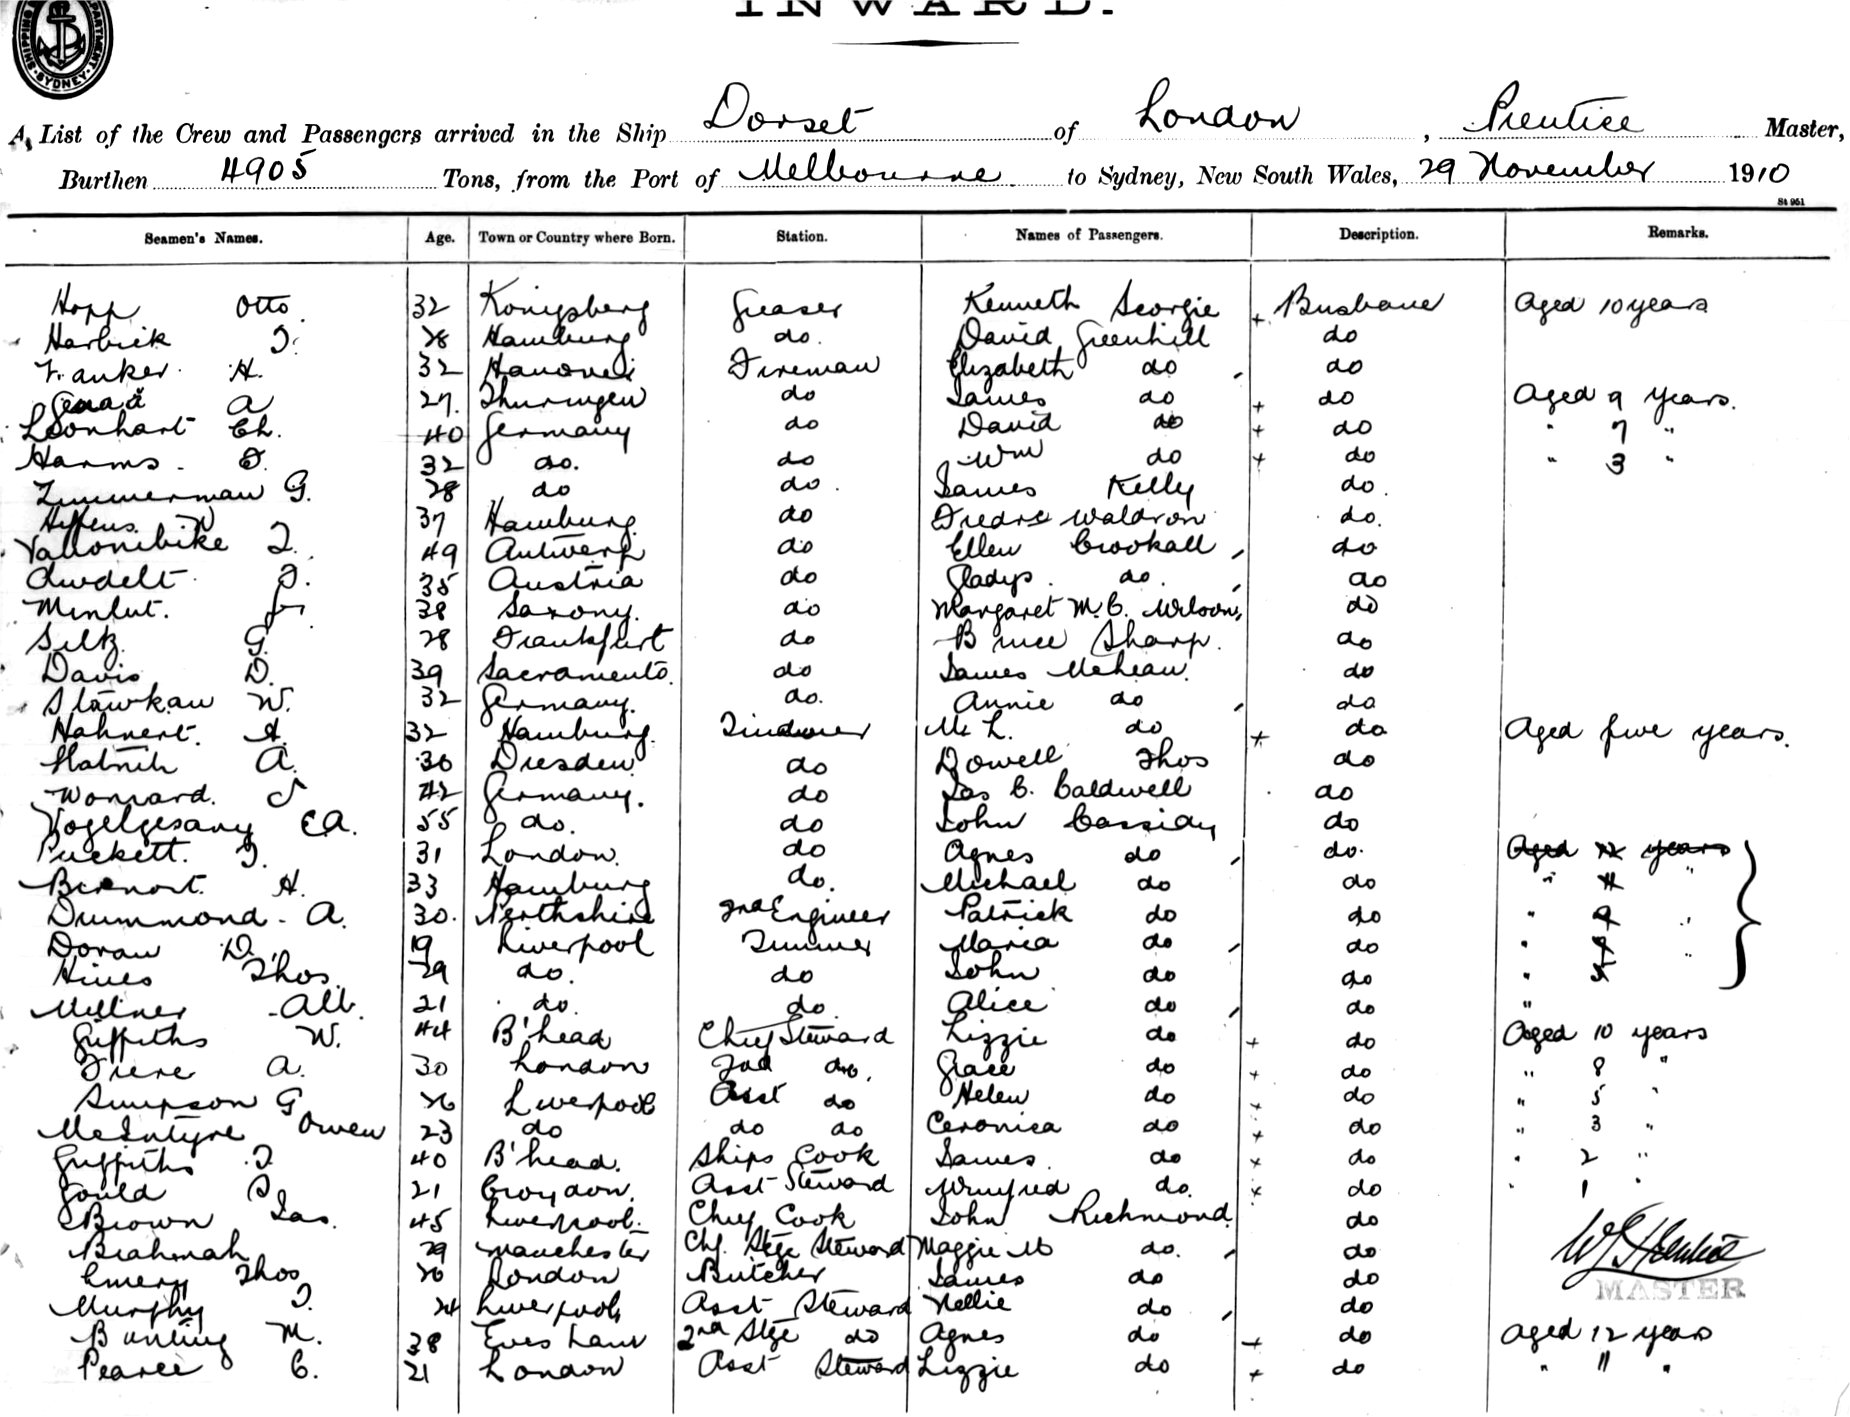 INWARD.
SHIPPING DEPARTMENT SYDNEY
A List of the Crew and Passengers arrived in the Ship Dorset of London, Prentice Master,
Burthen 4905 Tons, from the Port of Melbourne to Sydney, New South Wales, 29 November 1910
St 951
Seamen's Names. Age. Town or Country where Born. Station. Names of Passengers. Description. Remarks.
Hopp Otto. 32 Konigsberg Greaser Kenneth Scorgie + Brisbane Aged 10 years
Harbick 28 Hamburg do. David Greenhill do
Franker H. 32 Hanover Fireman Elizabeth do do
A 27. Thuringen do James do + do Aged 9 years.
Leonhart Ch. 40 Germany do David do + do " 7 "
Harms 32 do. do Wm do + do " 3 "
Zimmerman G. 28 do do. James Kelly do.
W 37 Hamburg do Waldron do.
49 Antwerp do Ellen Crookall do
35 Austria do Gladys do. do
38 Saxony. do Margaret M. C. Wilson, do
Silk G. 28 Frankfurt do Bruce Sharp. do
Davis D. 39 Sacramento. do James do
Stawkaw W. 32 Germany. do. Annie do do
Hahnert. A. 32 Hamburg. M. L. do + do Aged five years.
A. 36 Dresden do Dowell Thos do
42 Germany. do Jas C. Caldwell do
Vogelgesang C A. 55 do. do John Cassidy do
Puckett. 31 London. do Agnes do do. Aged 12 years
H. 33 Hamburg do. Michael do do " 11 "
Drummond - A. 30. Perthshire 2nd Engineer Patrick do do " 9 "
Doran D. 19 Liverpool Trimmer Maria do do "
Hines Thos. 29 do. do John do do " 5
Millner Alb. 21 do. do. Alice do do "
Griffiths W. 44 B'head Chief Steward Lizzie do + do Aged 10 years
Frere A. 30 London 2nd do. Grace do + do " 8 "
Simpson G 26 Liverpool Asst do Helen do + do " 5 "
McIntyre Owen 23 do do do Ceronica do + do " 3 "
Griffiths 40 B'head. Ships Cook James do + do " 2 "
Gould 21 Croydon. Asst Steward Winifred do. + do " 1 "
Brown Jas. 45 Liverpool. Chief Cook John Richmond do
Brahmah 29 Manchester Chf. Stge Steward Maggie M do. do
Emery Thos 26 London Butcher James do do
Murphy 24 Liverpool Asst Steward Nellie do do
Bunting M. 38 2nd Stge do Agnes do + do Aged 12 years
Pearce C. 21 London Asst Steward Lizzie do + do " 11 "
MASTER